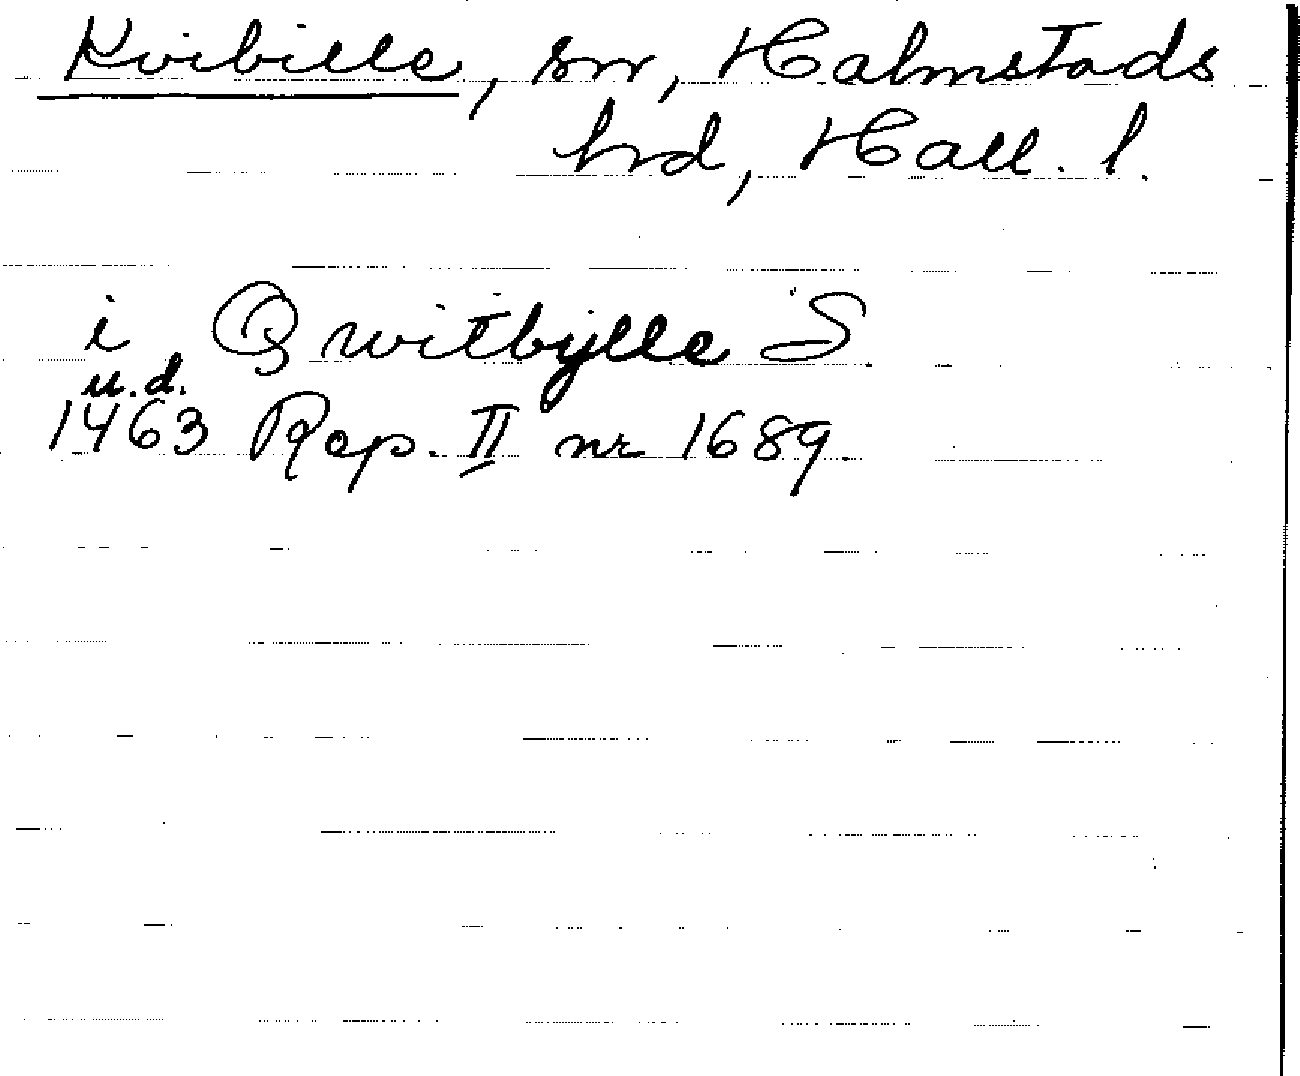 Kvibille, sn, Halmstads
hrd, Hall. l.
i Qwitbylle S
u.d.
1463 Rep. II nr 1689.